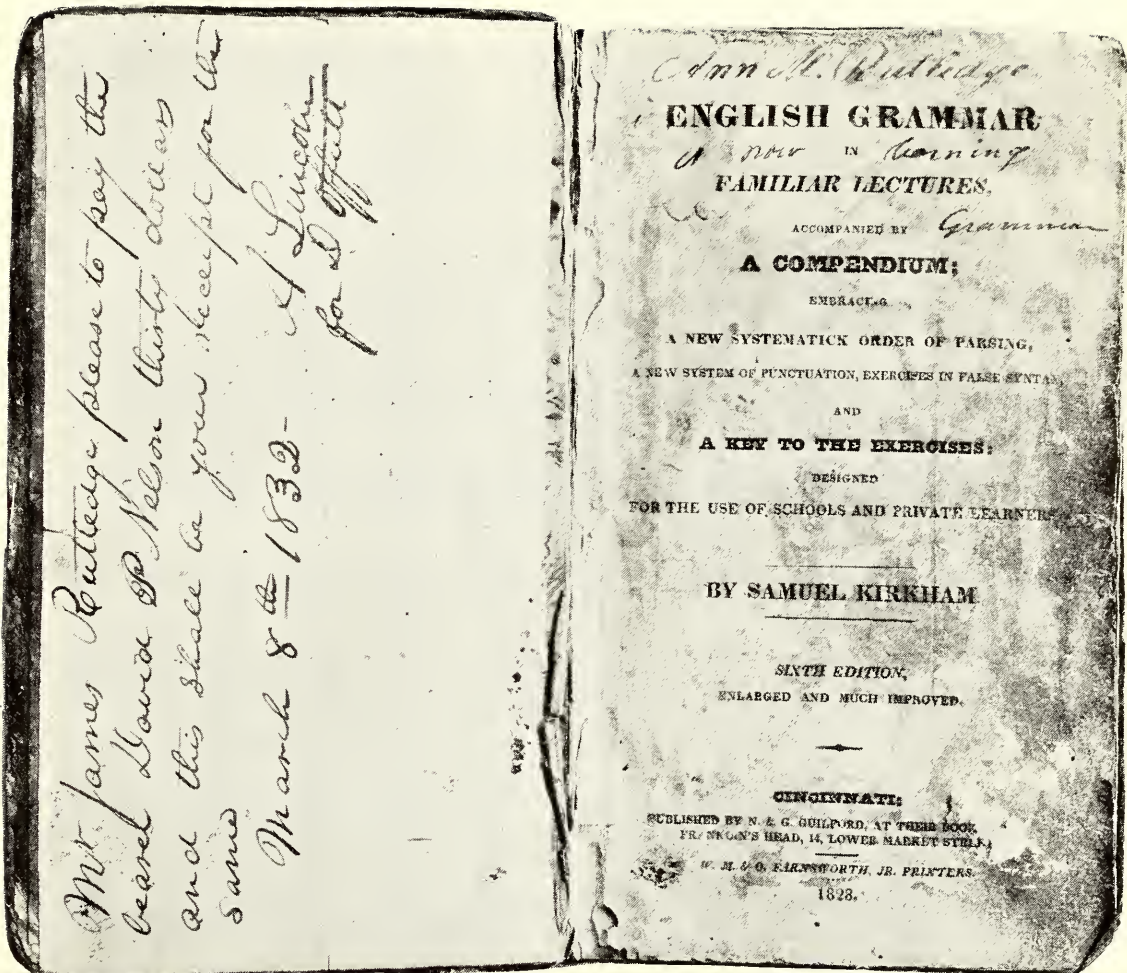 Mr James Rutledge please to pay the
bearer David P Nelson thirty dollars
and this shall be your receipt for the
same
March 8th 1832-
A Lincoln
for D Offutt
Ann M. Rutledge
ENGLISH GRAMMAR
is now IN learning
FAMILIAR LECTURES,
ACCOMPANIED BY Grammar
A COMPENDIUM;
EMBRACING
A NEW SYSTEMATICK ORDER OF PARSING,
A NEW SYSTEM OF PUNCTUATION, EXERCISES IN FALSE SYNTAX,
AND
A KEY TO THE EXERCISES:
DESIGNED
FOR THE USE OF SCHOOLS AND PRIVATE LEARNERS
BY SAMUEL KIRKHAM
SIXTH EDITION,
ENLARGED AND MUCH IMPROVED.
CINCINNATI:
PUBLISHED BY N. & G. GUILFORD, AT THEIR BOOK
FRANKLIN'S HEAD, 14, LOWER MARKET STREET
W. M. & O. FARNSWORTH, JR. PRINTERS.
1828.